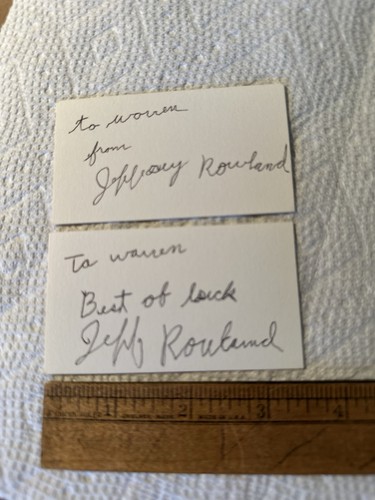 to warren
from
Jeffrey Rowland
To warren
Best of luck
Jeff Rowland
1 2 3 4
MADE IN U.S.A.